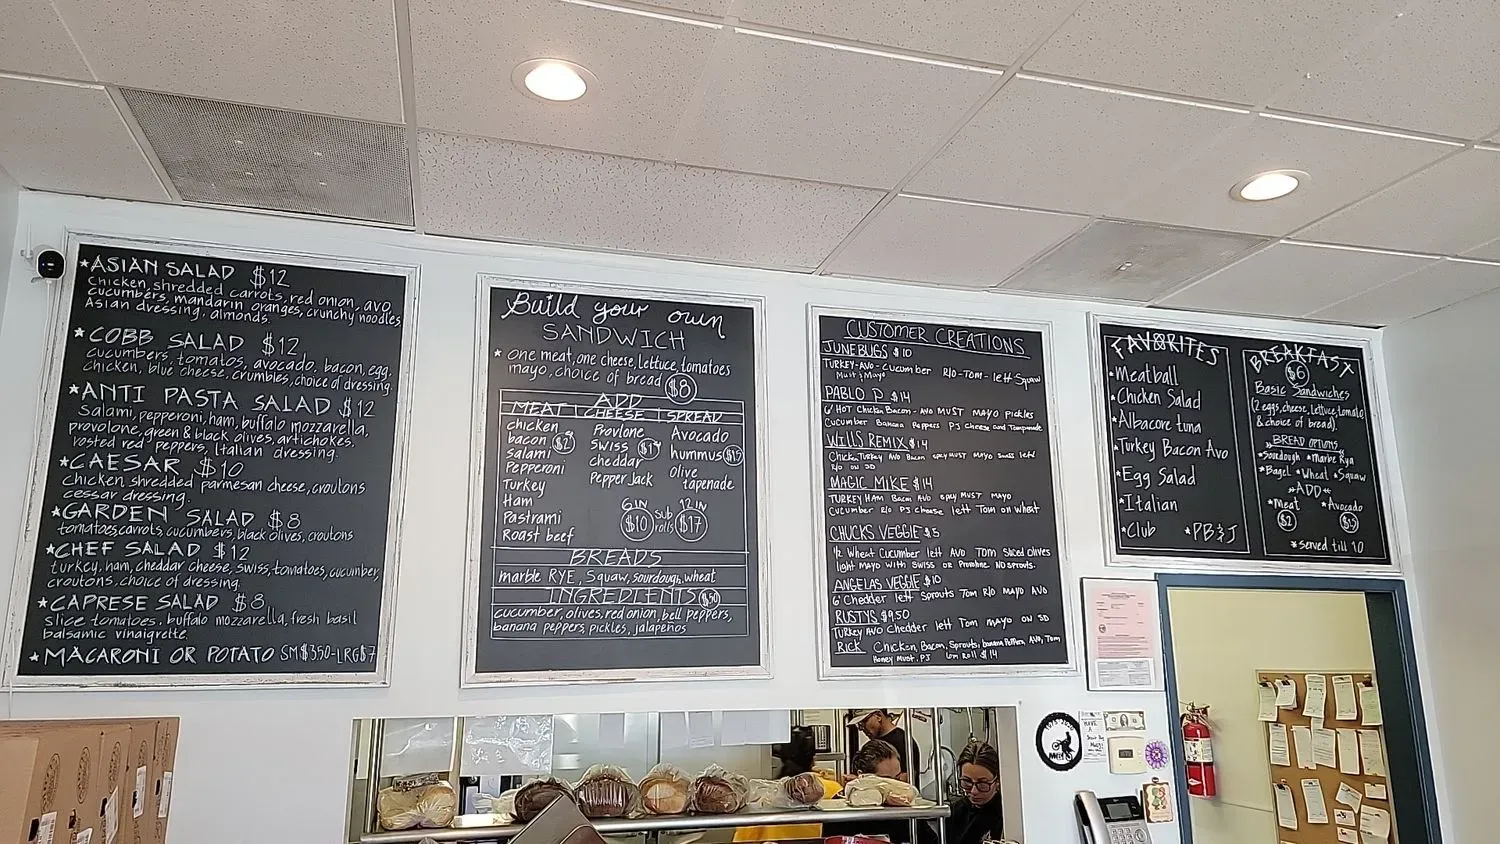 *ASIAN SALAD $12
Chicken, shredded carrots, red onion, avo,
cucumbers, mandarin oranges, crunchy noodles
Asian dressing, almonds.
*COBB SALAD $12
cucumbers, tomatos, avocado, bacon, egg,
chicken, blue cheese, crumbles, choice of dressing.
*ANTI PASTA SALAD $12
Salami, pepperoni, ham, buffalo mozzarella,
provolone, green & black olives, artichokes,
rosted red peppers, Italian dressing.
*CAESAR $10
chicken shredded parmesan cheese, croutons
cessar dressing.
*GARDEN SALAD $8
tomatoes, carrots, cucumbers, black olives, croutons
*CHEF SALAD $12
turkey, ham, cheddar cheese, swiss, tomatoes, cucumber,
croutons, choice of dressing.
*CAPRESE SALAD $8
slice tomatoes, buffalo mozzarella, fresh basil
balsamic vinaigrette.
*MACARONI OR POTATO SM $3.50-LRG $7
Build your own
SANDWICH
* one meat, one cheese, lettuce, tomatoes
mayo, choice of bread $8
ADD
MEAT | CHEESE | SPREAD
chicken
bacon $2
salami
Pepperoni
Turkey
Ham
Pastrami
Roast beef
Provlone
Swiss $1
cheddar
Pepper Jack
Avocado
hummus $1.5
olive
tapenade
6 IN SUB 12 IN
$10 rolls $17
BREADS
marble RYE, Squaw, sourdough, wheat
INGREDIENTS $.50
cucumber, olives, red onion, bell peppers,
banana peppers, pickles, jalapeños
CUSTOMER CREATIONS
JUNEBUGS $10
TURKEY-AVO-Cucumber R/O-Tom-left Squaw
Must & Mayo
PABLO P. $14
6" HOT Chicken Bacon - AVO MUST MAYO pickles
Cucumber Banana Peppers PJ Cheese and Tampanade
WILLS REMIX $14
Chicken Turkey AVO Bacon spcy MUST MAYO swiss left
R/O ON SD
MAGIC MIKE $14
TURKEY HAM Bacon AVO spcy MUST MAYO
Cucumber R/O PJ Cheese left Tom on Wheat
CHUCKS VEGGIE $5
1/2 Wheat Cucumber left AVO Tom Sliced Olives
light Mayo with Swiss or Provlone NO sprouts.
ANGELAS VEGGIE $10
6" Chedder left Sprouts Tom R/O MAYO AVO
RUSTYS $9.50
TURKEY AVO Chedder left Tom MAYO ON SD
RICK Chicken, Bacon, Sprouts, banana Peppers, AVO, Tom
Honey Must. PJ 6in Roll $14
FAVORITES
•Meatball
•Chicken Salad
•Albacore tuna
•Turkey Bacon Avo
•Egg Salad
•Italian
•Club •PB&J
BREAKFAST
$6
Basic Sandwiches
(2 eggs, cheese, lettuce, tomato
& choice of bread).
BREAD OPTIONS
•Sourdough •Marbe Rya
•Bagel •Wheat •Squaw
ADD
•Meat •Avocado
$2 $1.5
*served till 10